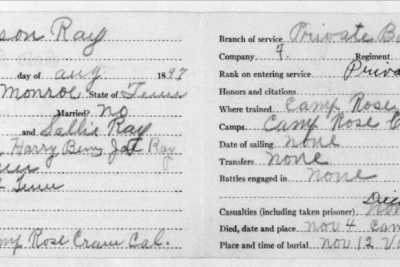 son Ray
day of aug 1897
Monroe State of Tenn
Married? no
and Sallie Ray
Harry Benny Jas Ray
Tenn
mp Rose Crans Cal.
Branch of service Private
Company 7 Regiment
Rank on entering service Priva
Honors and citations
Where trained Camp Rose
Camps Camp Rose C
Date of sailing none
Transfers none
Battles engaged in none
Casualties (including taken prisoner)
Died, date and place nov 4 Cam
Place and time of burial nov 12